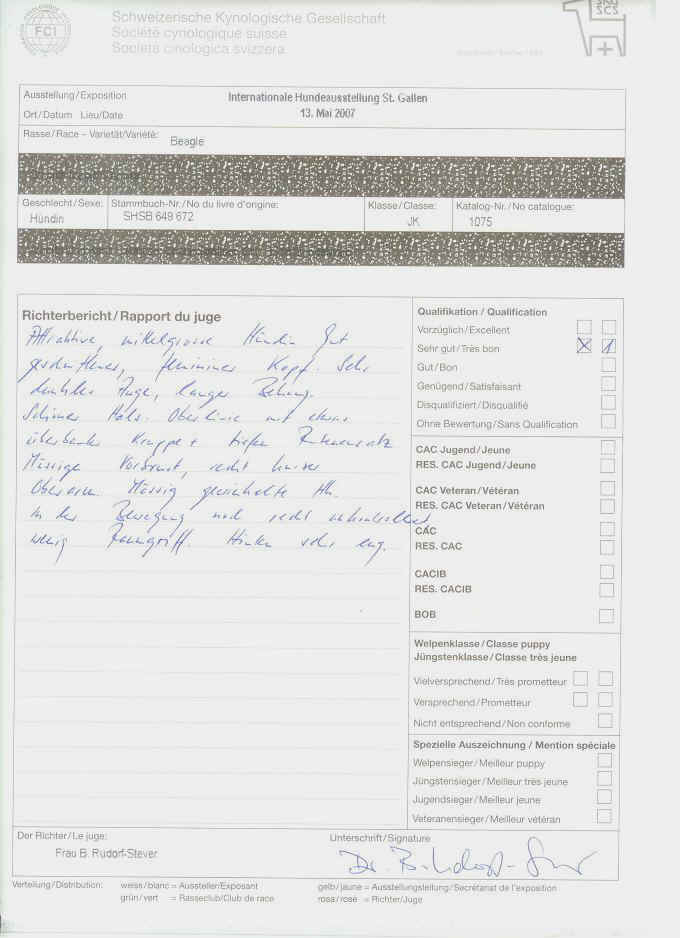 FCI
Schweizerische Kynologische Gesellschaft
Société cynologique suisse
Società cinologica svizzera
Ausstellung/Exposition
Internationale Hundeausstellung St. Gallen
Ort/Datum Lieu/Date
13. Mai 2007
Rasse/Race – Varietät/Varieté:
Beagle
Geschlecht/Sexe:
Hündin
Stammbuch-Nr./No du livre d'origine:
SHSB 649 672
Klasse/Classe:
JK
Katalog-Nr./No catalogue:
1075
Richterbericht/Rapport du juge
Attraktive, mittelgrosse Hündin Gut
geschnittener, femininer Kopf. Sehr
dunkles Auge, langer Behang.
Schöner Hals. Oberlinie mit etwas
überbauter Kruppe + tiefem Rutenansatz
Mässige Vorbrust, recht kurzer
Oberarm. Mässig gewinkelte Hh.
In der Bewegung noch recht unkontrolliert
wenig Raumgriff. Hinten sehr eng.
Qualifikation/Qualification
Vorzüglich/Excellent
Sehr gut/Très bon X 1
Gut/Bon
Genügend/Satisfaisant
Disqualifiziert/Disqualifié
Ohne Bewertung/Sans Qualification
CAC Jugend/Jeune
RES. CAC Jugend/Jeune
CAC Veteran/Vétéran
RES. CAC Veteran/Vétéran
CAC
RES. CAC
CACIB
RES. CACIB
BOB
Welpenklasse/Classe puppy
Jüngstenklasse/Classe très jeune
Vielversprechend/Très prometteur
Versprechend/Prometteur
Nicht entsprechend/Non conforme
Spezielle Auszeichnung/Mention spéciale
Welpensieger/Meilleur puppy
Jüngstensieger/Meilleur très jeune
Jugendsieger/Meilleur jeune
Veteranensieger/Meilleur vétéran
Der Richter/Le juge:
Frau B. Rudorf-Stever
Unterschrift/Signature
Verteilung/Distribution:
weiss/blanc = Aussteller/Exposant
grün/vert = Rasseclub/Club de race
gelb/jaune = Ausstellungsleitung/Secrétariat de l'exposition
rosa/rose = Richter/Juge